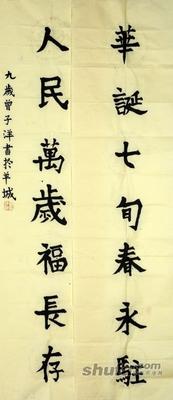 華誕七旬春永駐
人民萬歲福長存
九歲曾子洋書於羊城